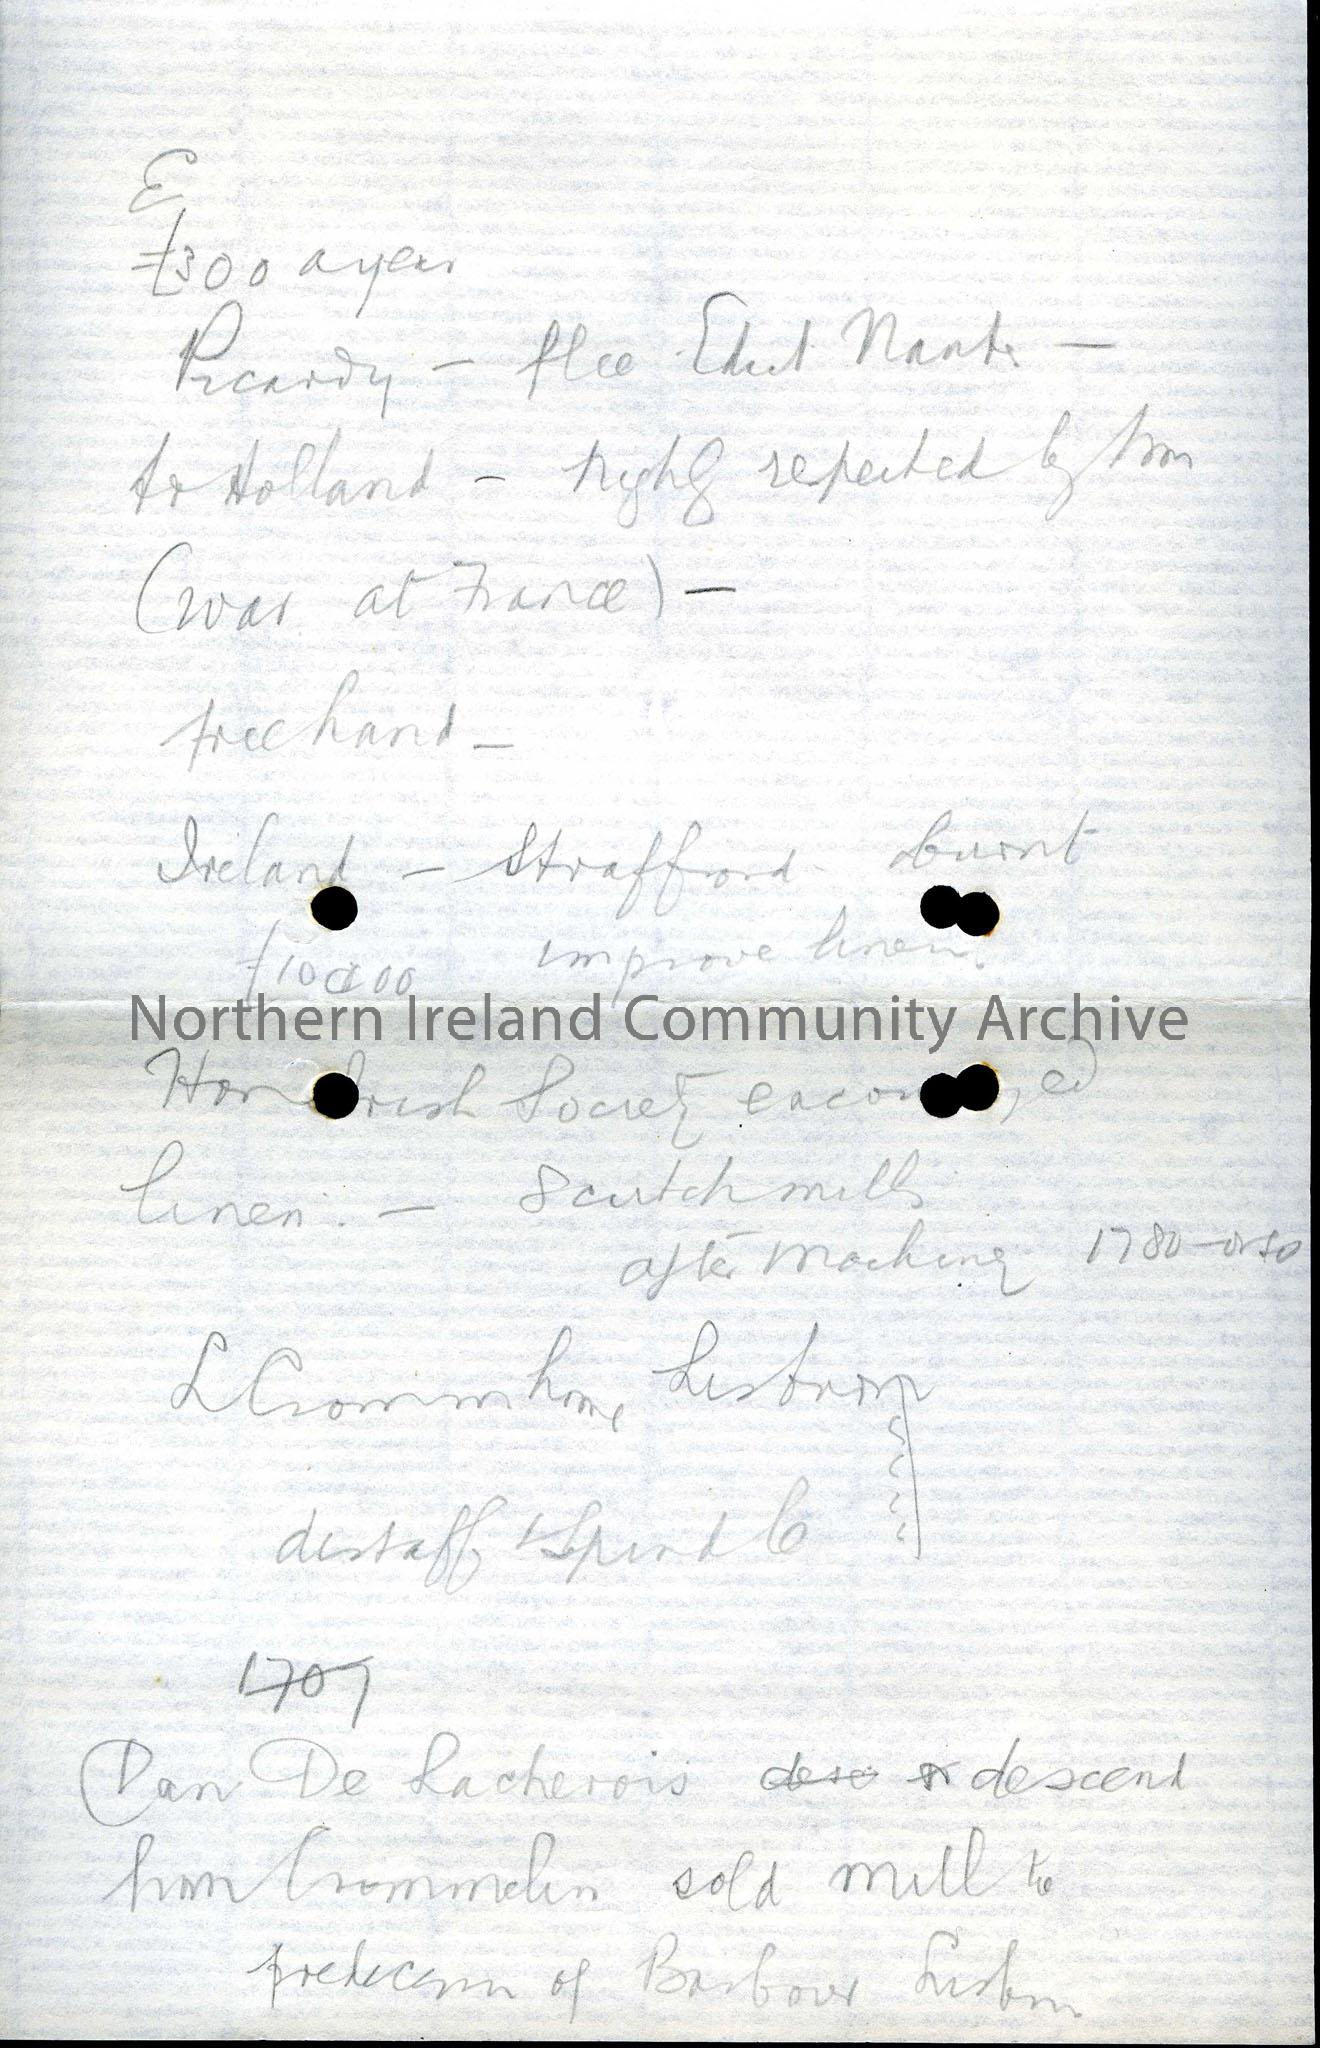 £
£300 a year
Picardy – flee Edict Nantes –
to Holland – highly respected by him
(was at France) –
free hand –
Ireland – Strafford burnt
£10000 improve linen.
Northern Ireland Community Archive
Hon Irish Society encouraged
linen. – Scutch mills
after machinery 1780 – or so
L Crommeline Lisburn
distaff & spindle
1707
Dan De Lacherois descend
from Crommelin sold mill to
predecessor of Barbour Lisburn